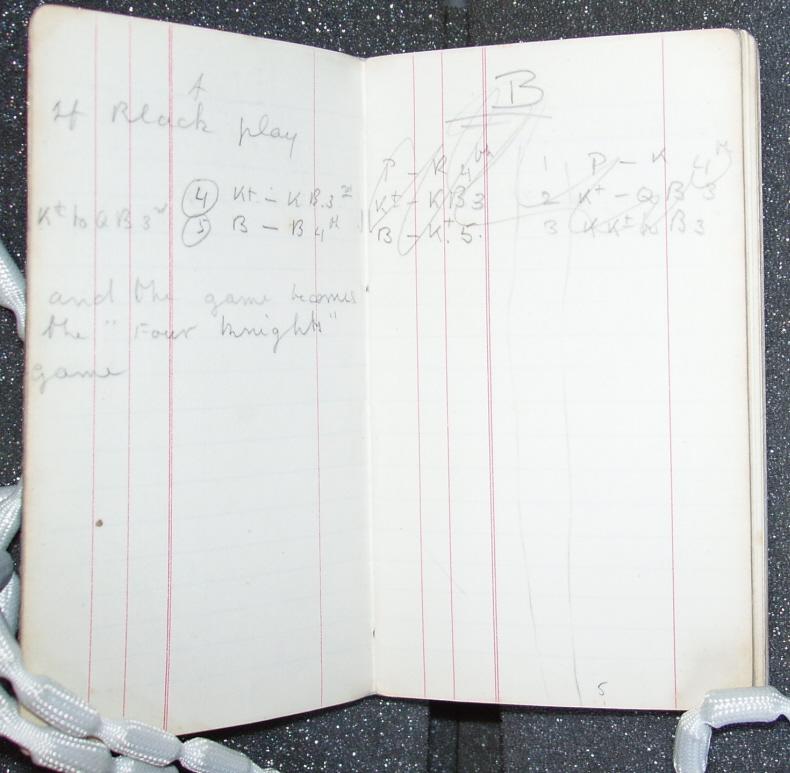 A
If Black play
Kt to QB3rd (4) Kt - KB3rd
(5) B - B4th
and the game becomes
the "Four Knights"
game
B
P - K4th 1 P - K 4th
Kt - KB3 2 Kt - QB3
B - Kt.5. 3 KKt to B3
5